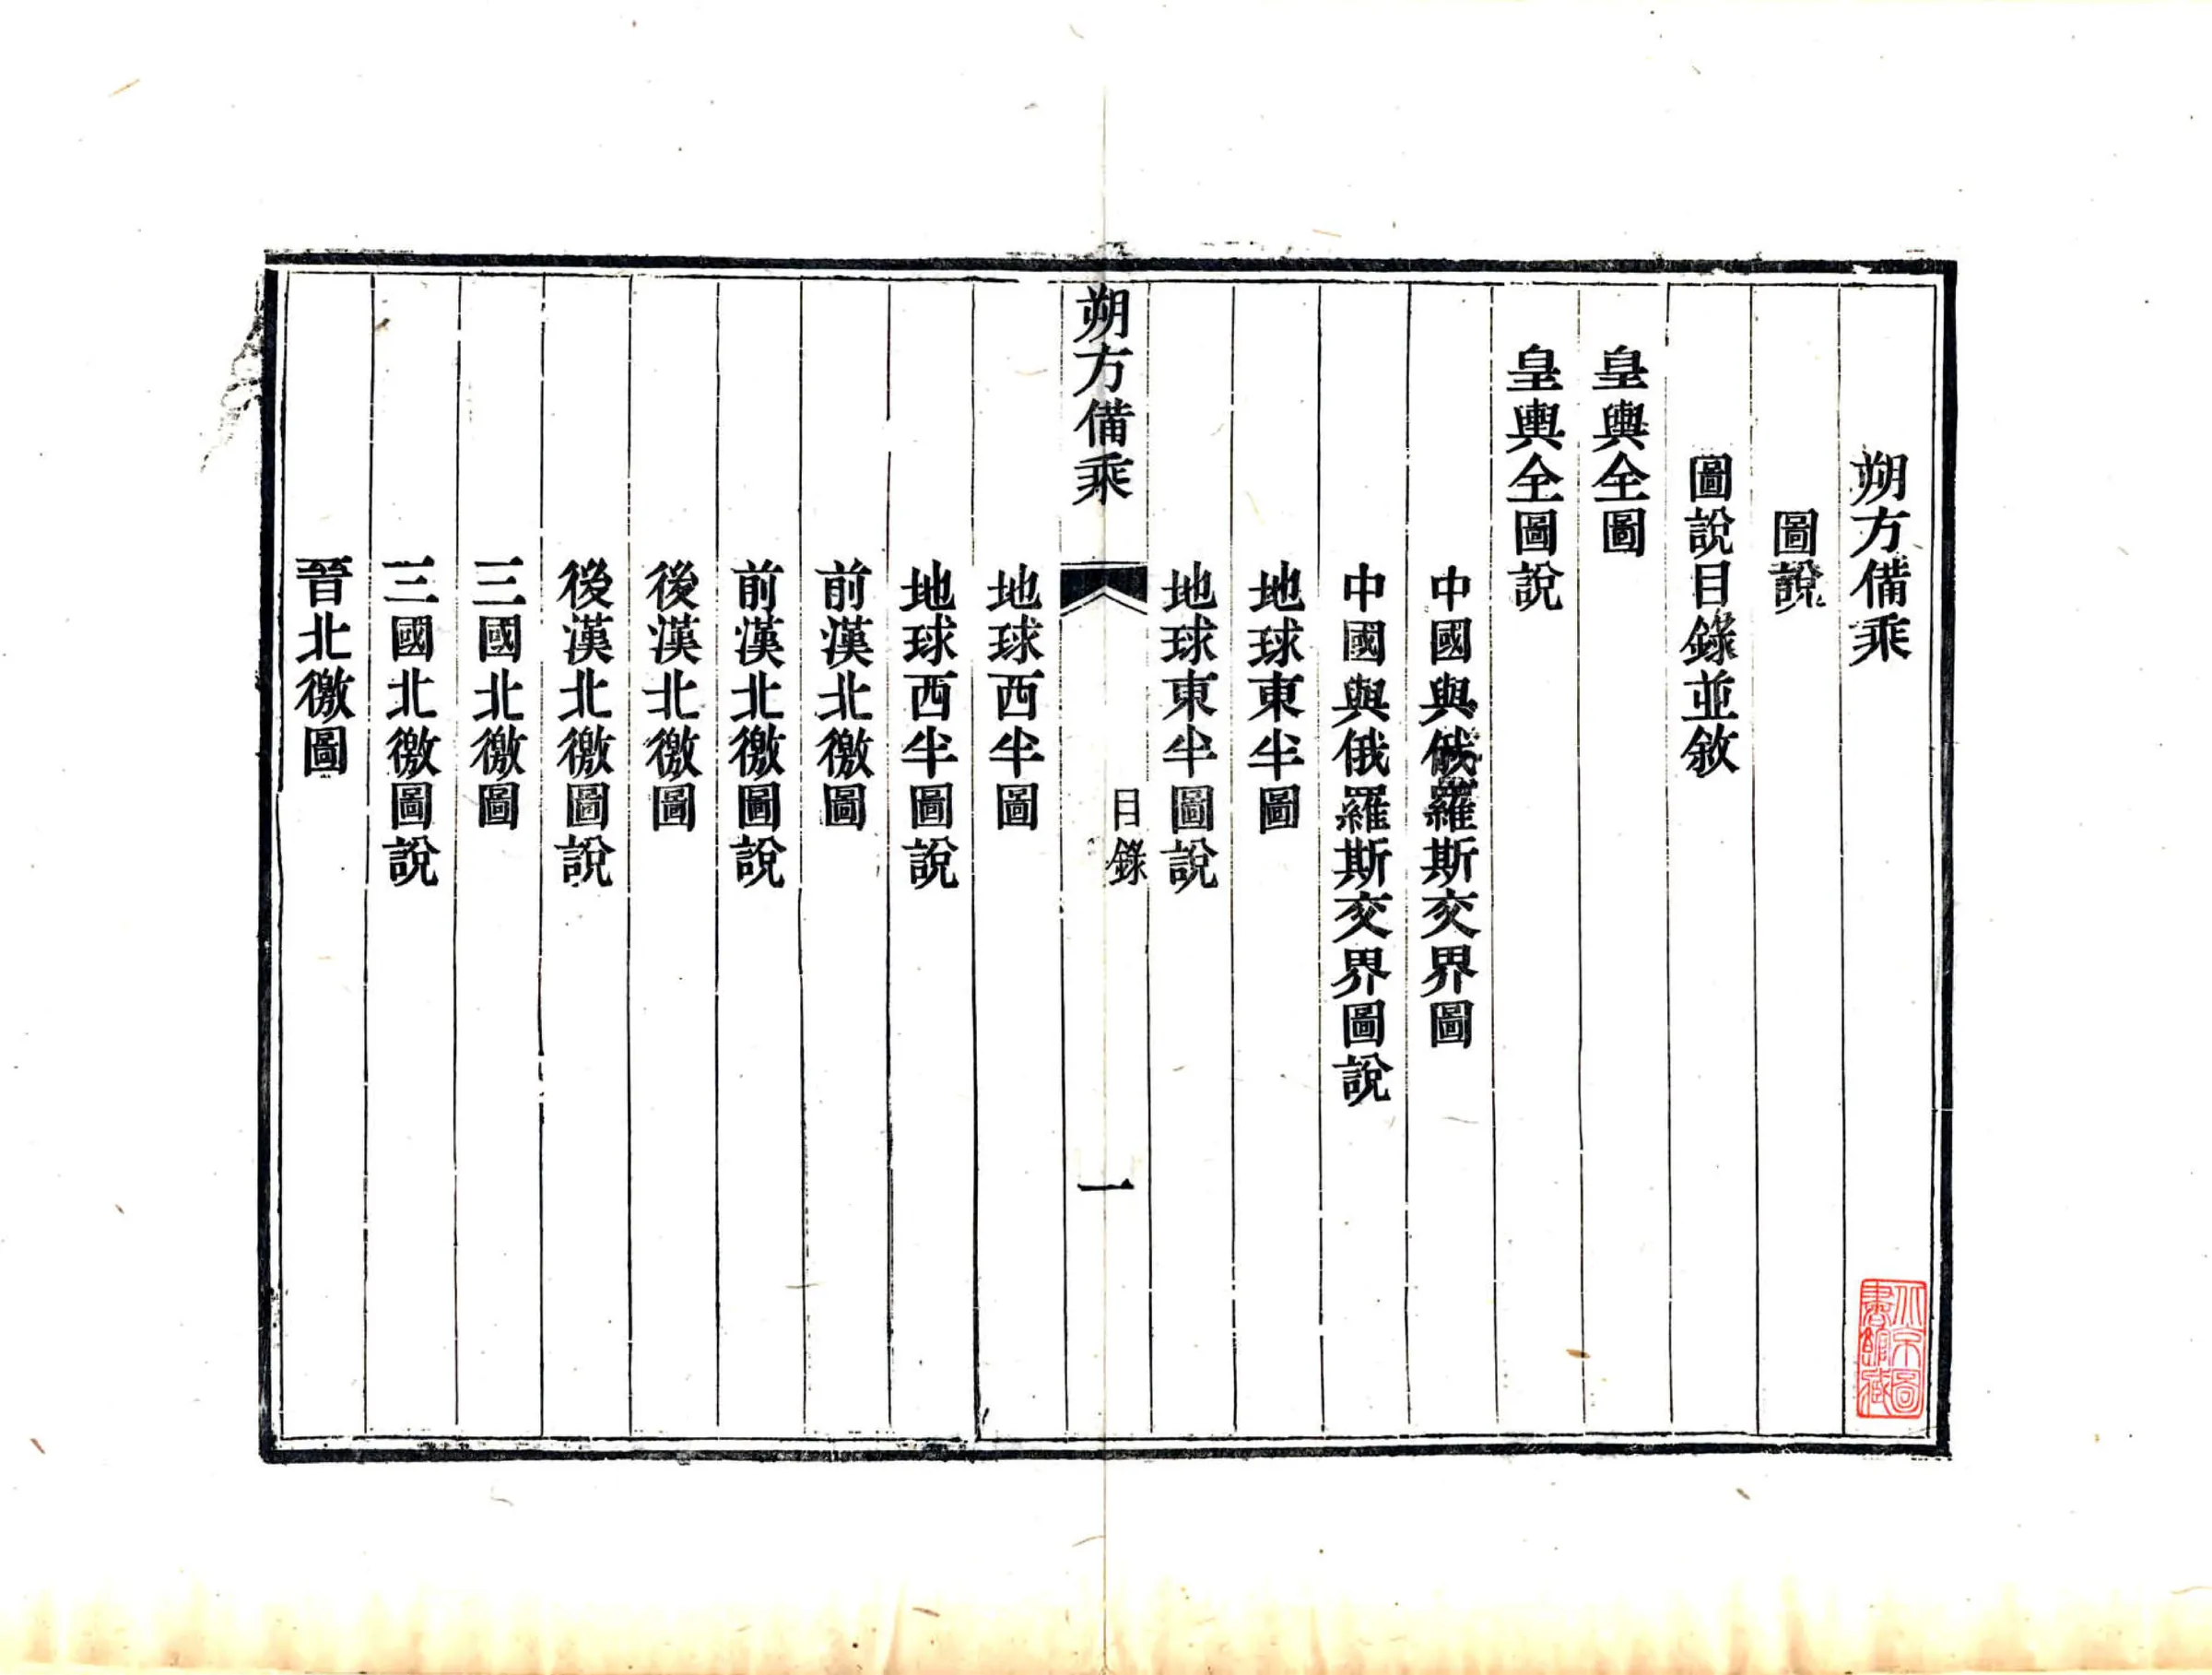 朔方備乘
圖說
圖說目錄並敘
皇輿全圖
皇輿全圖說
中國與俄羅斯交界圖
中國與俄羅斯交界圖說
地球東半圖
地球東半圖說
朔方備乘
目錄
一
地球西半圖
地球西半圖說
前漢北徼圖
前漢北徼圖說
後漢北徼圖
後漢北徼圖說
三國北徼圖
三國北徼圖說
晉北徼圖
北京圖
書館藏